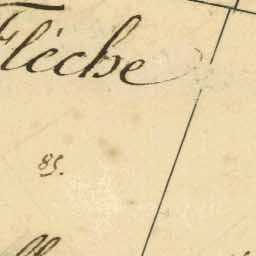 Flèche
85.